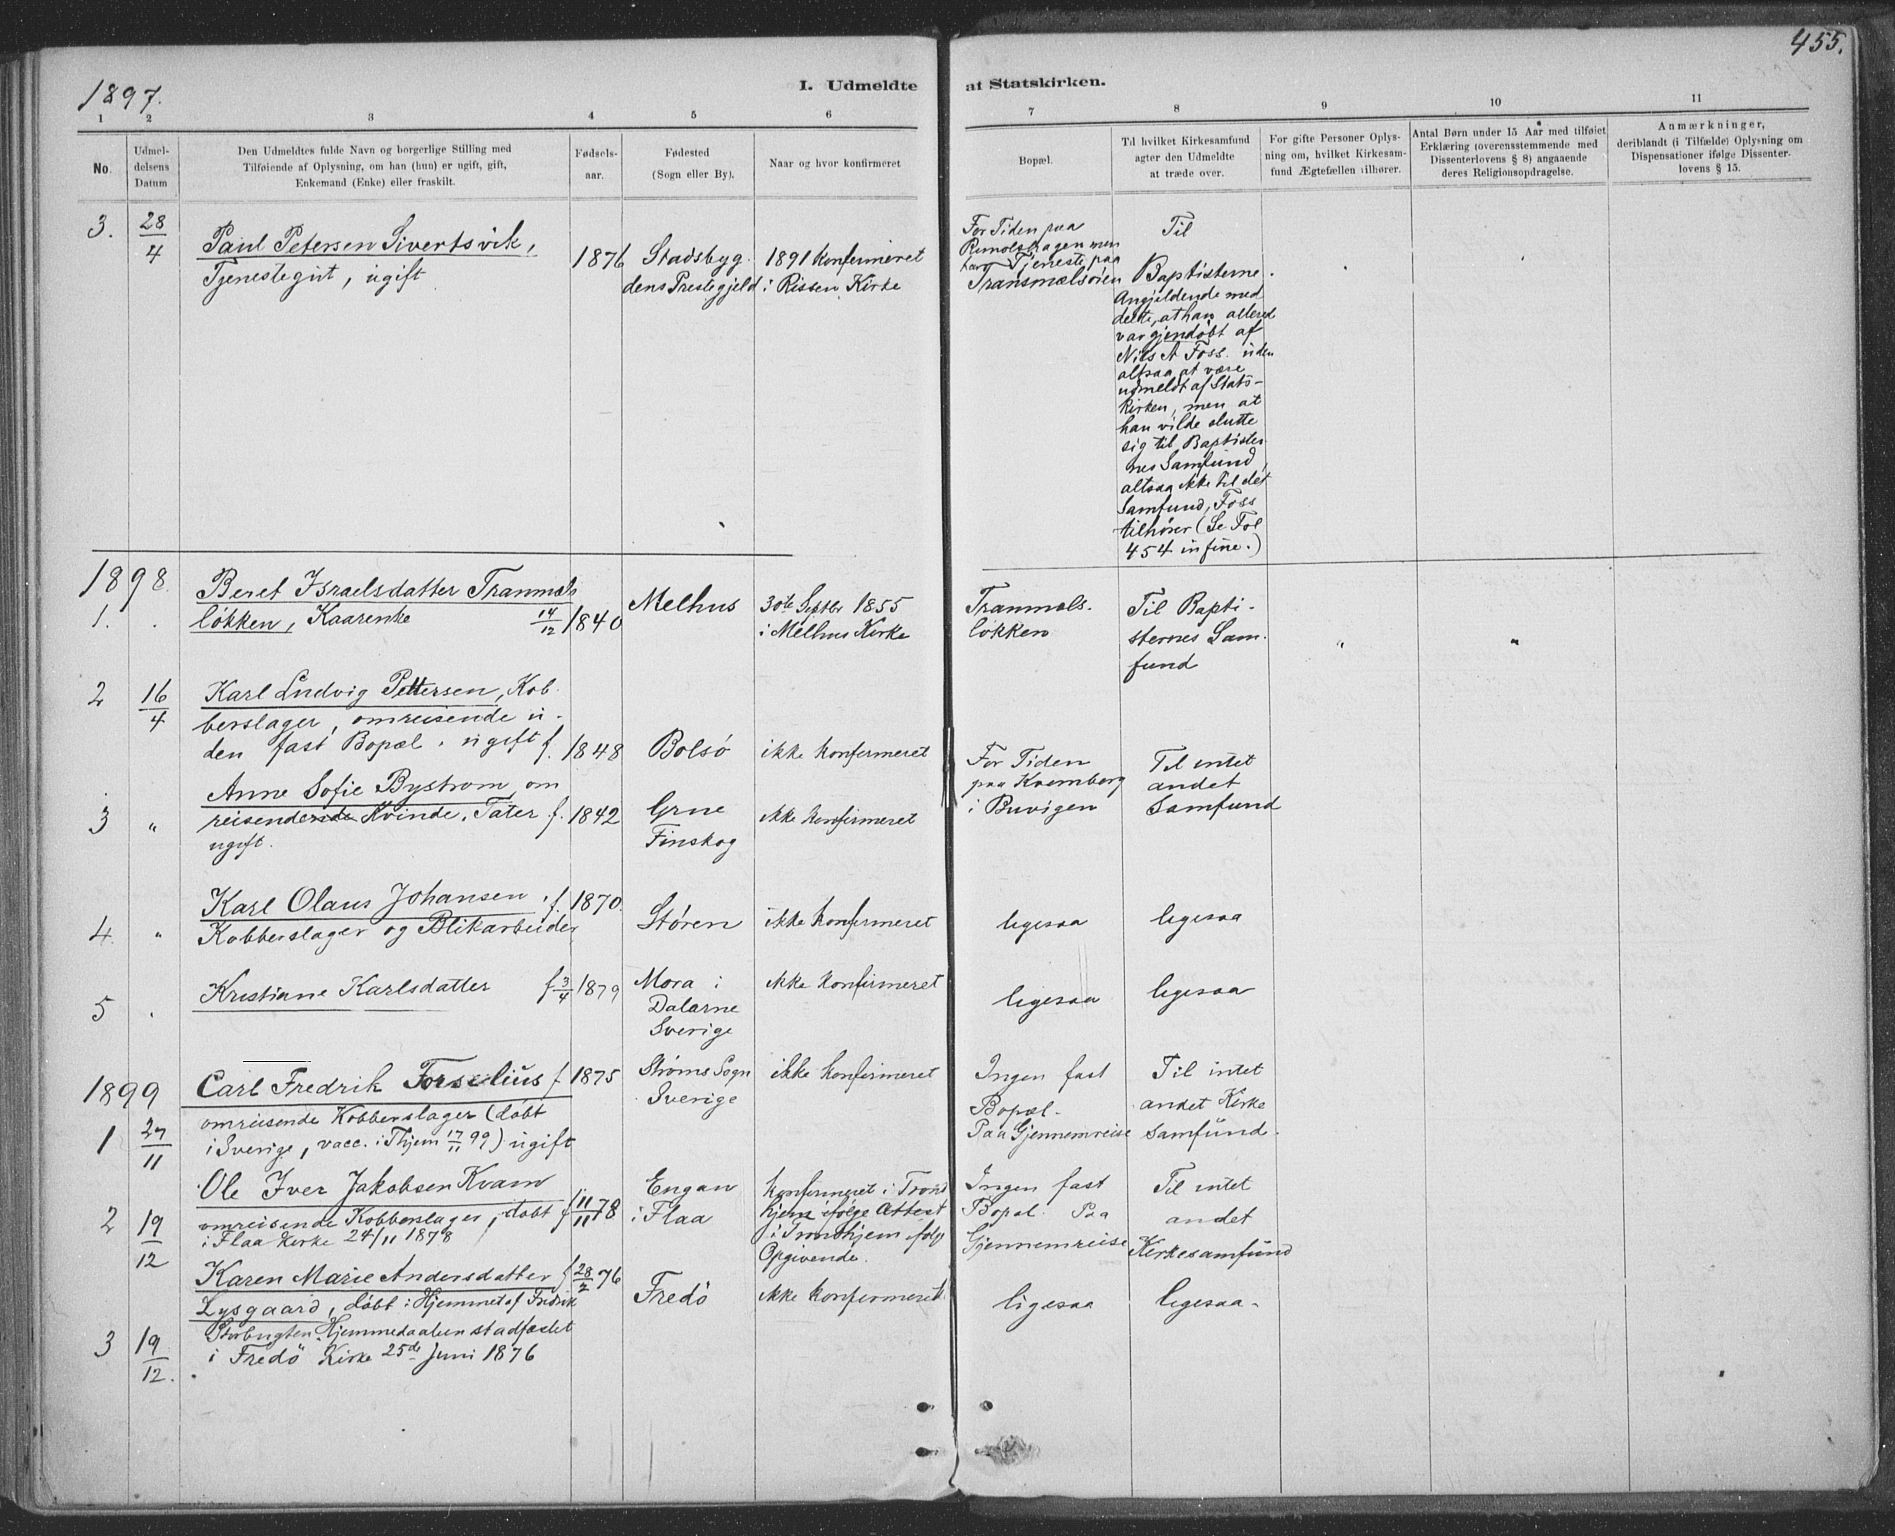 455.
1897.
I. Udmeldte af Statskirken.
1 2 3 4 5 6 7 8 9 10 11
No.
Udmel-
delsens
Datum
Den Udmeldtes fulde Navn og borgerlige Stilling med
Tilføiende af Oplysning, om han (hun) er ugift, gift,
Enkemand (Enke) eller fraskilt.
Fødsels-
aar.
Fødested
(Sogn eller By).
Naar og hvor konfirmeret
Bopæl.
Til hvilket Kirkesamfund
agter den Udmeldte
at træde over.
For gifte Personer Oplys-
ning om, hvilket Kirkesam-
fund Ægtefællen tilhører.
Antal Børn under 15 Aar med tilføiet
Erklæring (overensstemmende med
Dissenterlovens § 8) angaaende
deres Religionsopdragelse.
Anmærkninger,
deriblandt (i Tilfælde) Oplysning om
Dispensationer ifølge Dissenter-
lovens § 15.
3. 28/4
Paul Petersen Sivertsvik,
Tjenestegut, ugift
1876
Stadsbyg-
dens Prestegjeld
1891 konfirmeret
i Rissen Kirke
For Tiden paa
Rimolshagen men
har Tjeneste paa
Tranmælsøren
Til
Baptisterne.
Angjeldende med
delte, at han allered
var gjendøbt af
Nils A Foss uden
altsaa at være
udmeldt af Stats-
kirken, men at
han vilde slutte
sig til Baptister
nes Samfund,
altsaa ikke til det
Samfund, Foss
tilhører (Se Fol
454 in fine.)
1898
1. .
Beret Israelsdatter Tranmæls
løkken, Kaarenke 14/12
1840
Melhus
30te Septbr 1855
i Melhus Kirke
Tranmæls-
løkken
Til Bapti-
sternes Sam-
fund
" "
2 16/4
Karl Ludvig Pettersen, Kob-
berslager, omreisende u-
den fast Bopæl. ugift f.
1848
Bolsø
ikke konfirmeret
For Tiden
paa Kvemborg
i Buvigen
Til intet
andet
Samfund
3 "
Anne Sofie Bystrom, om
reisende Kvinde, Tater f.
ugift.
1842
Grue
Finskog
ikke konfirmeret
4. "
Karl Olaus Johansen, f.
Kobberslager og Blikarbeider
1870.
Støren
ikke konfirmeret
ligesaa
ligesaa
5 .
Kristiane Karlsdatter f 3/4
1879
Mora i
Dalarne
Sverige
ikke konfirmeret
ligesaa
ligesaa
1899
1 27/11
Carl Fredrik Forselius f
omreisende Kobberslager (døbt
i Sverige, vacc. i Thjem 17/11 99) ugift
1875
Strøms Sogn
Sverige
ikke konfirmeret
Ingen fast
Bopæl.
Paa Gjennemreise
Til intet
andet Kirke
samfund.
2 19/12
Ole Iver Jakobsen Kvam
omreisende Kobberslager, døbt f
i Flaa Kirke 24/11 1878
11/11 78
Engan
i Flaa
konfirmeret i Trond
hjem ifølge Attest
i Trondhjem ifølg
Opgivende.
Ingen fast
Bopæl. Paa
Gjennemreise
Til intet
andet
Kirkesamfund
3 19/12.
Karen Marie Andersdatter f
Lysgaard, døbt i Hjemmet af Fredrik
Storbugten. Hjemmedaaben stadfæstet
i Fredö Kirke 25de Juni 1876
28/2 76
Fredö
ikke konfermeret.
ligesaa
ligesaa.